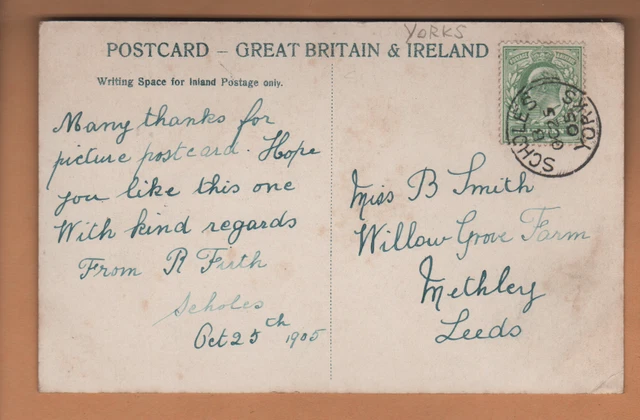 YORKS
POSTCARD – GREAT BRITAIN & IRELAND
Writing Space for Inland Postage only.
Many thanks for
picture postcard. Hope
you like this one
With kind regards
From R Firth
Scholes
Oct 25th 1905
SCHOLES
OC 25
05
YORKS
Miss B Smith
Willow Grove Farm
Methley
Leeds